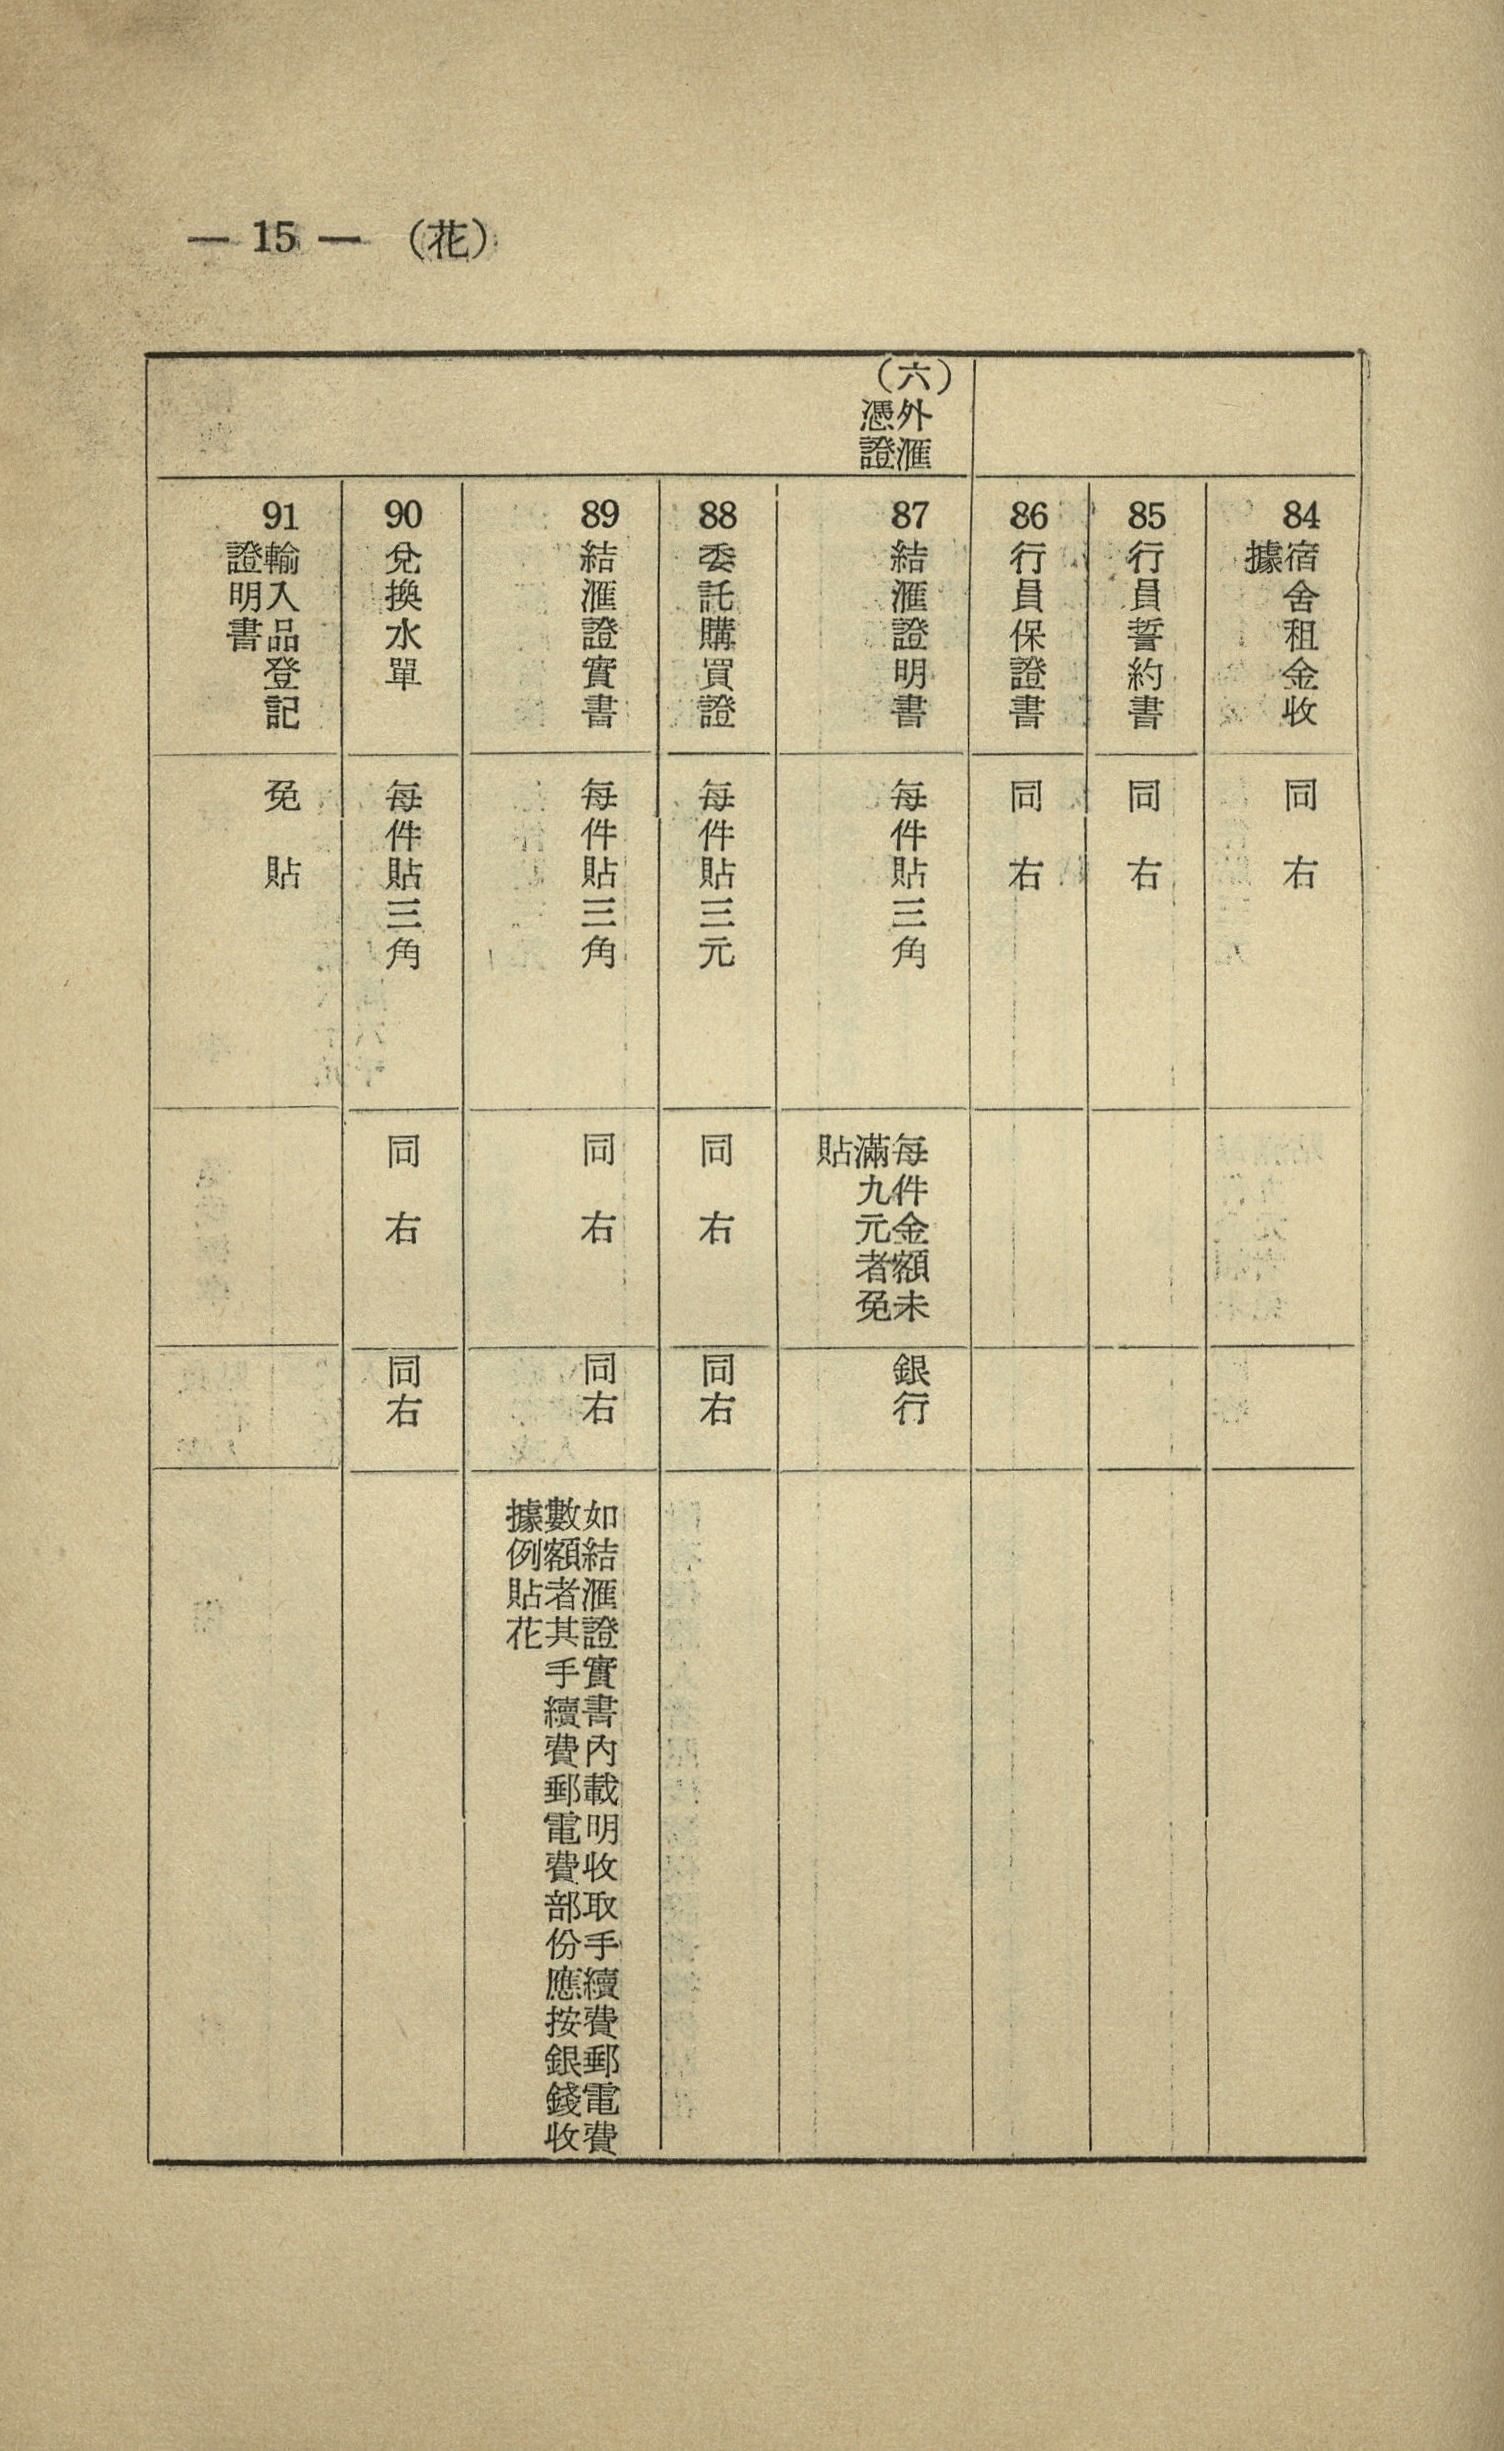 — 15 — （花）
84
宿舍租金收
據
同右
85
行員誓約書
同右
86
行員保證書
同右
（六）
外滙
憑證
87
結滙證明書
每件貼三角
每件金額未
滿九元者免
貼
銀行
88
委託購買證
每件貼三元
同右
同右
89
結滙證實書
每件貼三角
同右
同右
如結滙證實書內載明收取手續費郵電費
數額者其手續費郵電費部份應按銀錢收
據例貼花
90
兌換水單
每件貼三角
同右
同右
91
輸入品登記
證明書
免貼